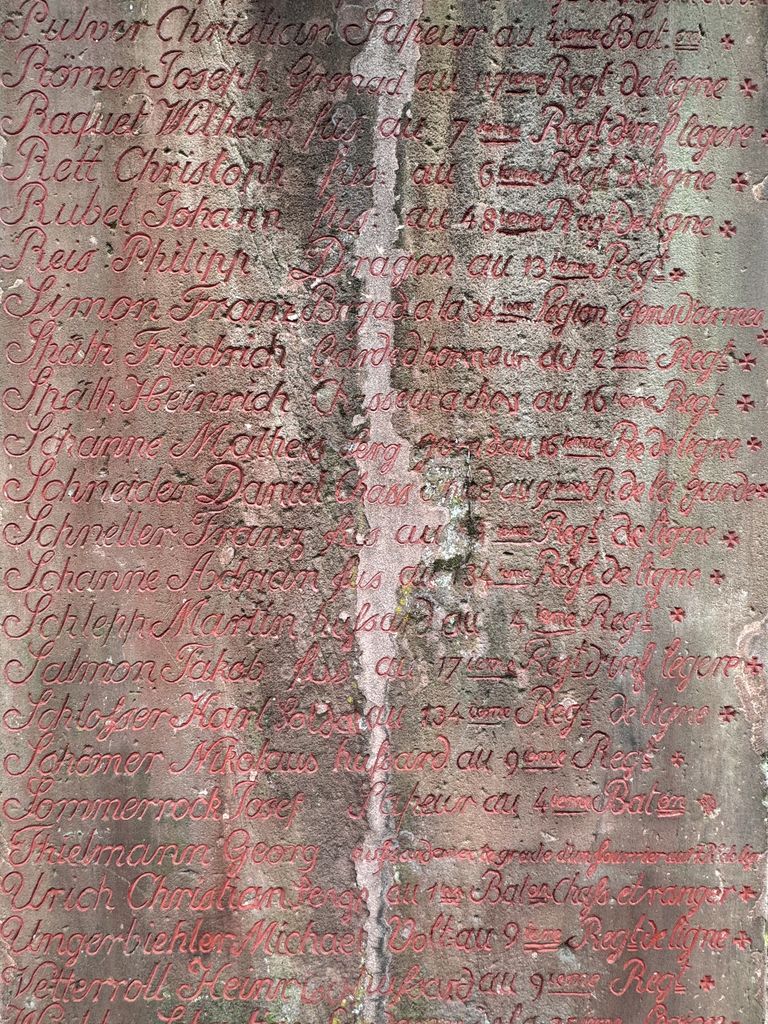 Pulver Christian Sapeur au 4ieme Bat en
Römer Joseph Grenad au 117ieme Regt de ligne
Raquet Wilhelm fus au 7 ieme Regt d'inf legere
Rett Christoph fus au 6ieme Regt de ligne
Rubel Johann fus au 48ieme Regt de ligne
Reis Philipp Dragon au 13ieme Regt
Simon Franz Brigad a la 34ieme legion gensdarmee
Späth Friedrich Garde d'honneur du 2ieme Regt
Späth Heinrich au 16ieme Regt
Schanne Matheis serg au 16ieme R. de ligne
Schneider Daniel Chass au 2ieme R. de la garde
Schneller Franz fus au ieme Regt de ligne
Schanne Adrian fus au 34ieme Regt de ligne
Schlepp Martin hussard au 4 ieme Regt
Salmon Jakob fus au 17ieme Regt d'inf legere
Schlosser Karl Soldat au 134 ieme Regt de ligne
Schömer Nikolaus hussard au 9ieme Regt
Sommerrock Josef Sapeur au 4ieme Bat en
Thielmann Georg
Urich Christian serg au 1er Bat en Chass etranger
Ungerbiehler Michael Volt au 9 ieme Regt de ligne
Vetterroll Heinrich hussard au 9ieme Regt